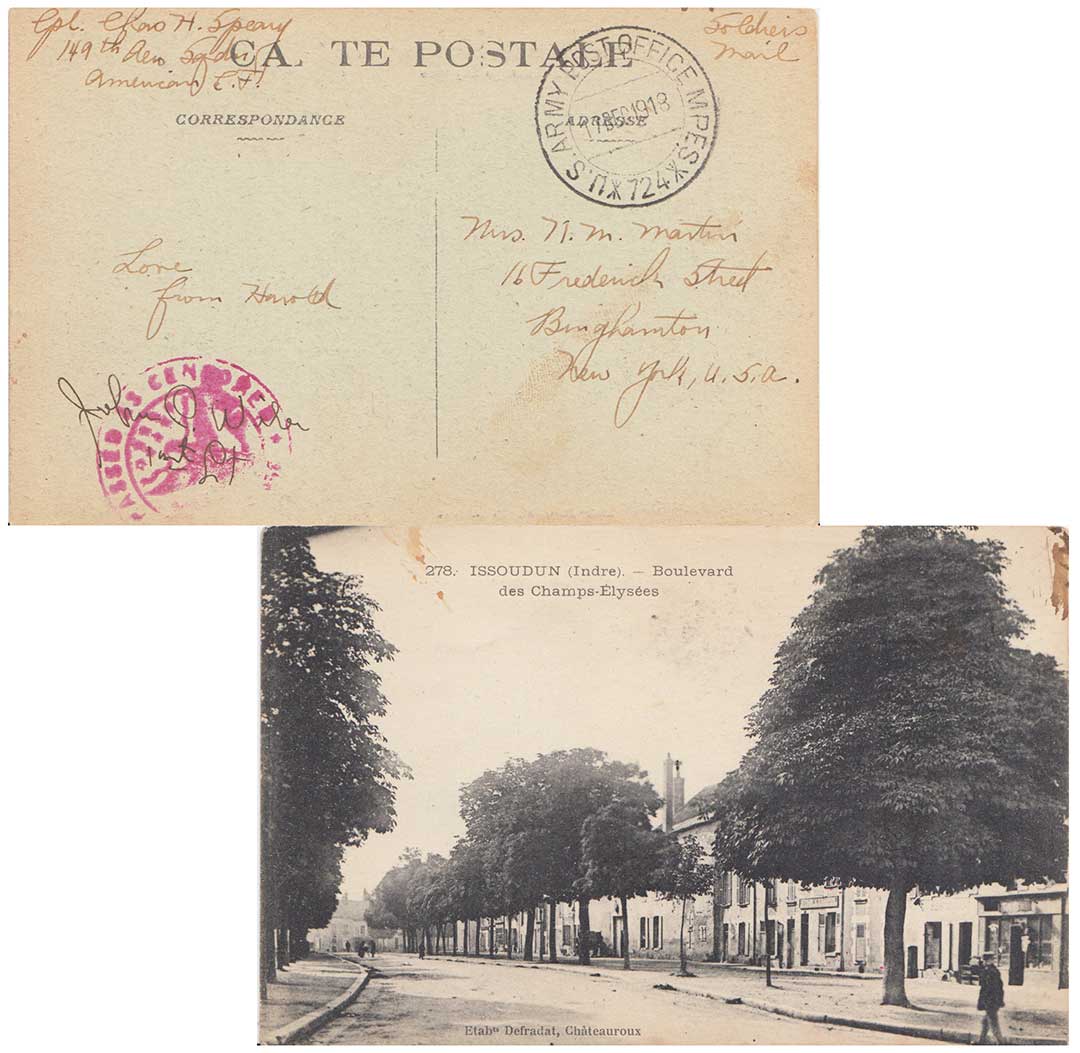 Cpl. Chas H. Speary
149th Aero Sqdn
American E.F.
Soldiers
Mail
CA TE POSTALE
CORRESPONDANCE
ADRESSE
U.S. ARMY POST OFFICE M.P.E.S. 724
17 DEC 1918
Mrs. N. M. Martin
16 Frederick Street
Binghamton
New York, U.S.A.
Love
from Harold
PASSED AS CENSORED
John P.
1st Lt
278. ISSOUDUN (Indre). — Boulevard
des Champs-Élysées
Etabts Defradat, Châteauroux